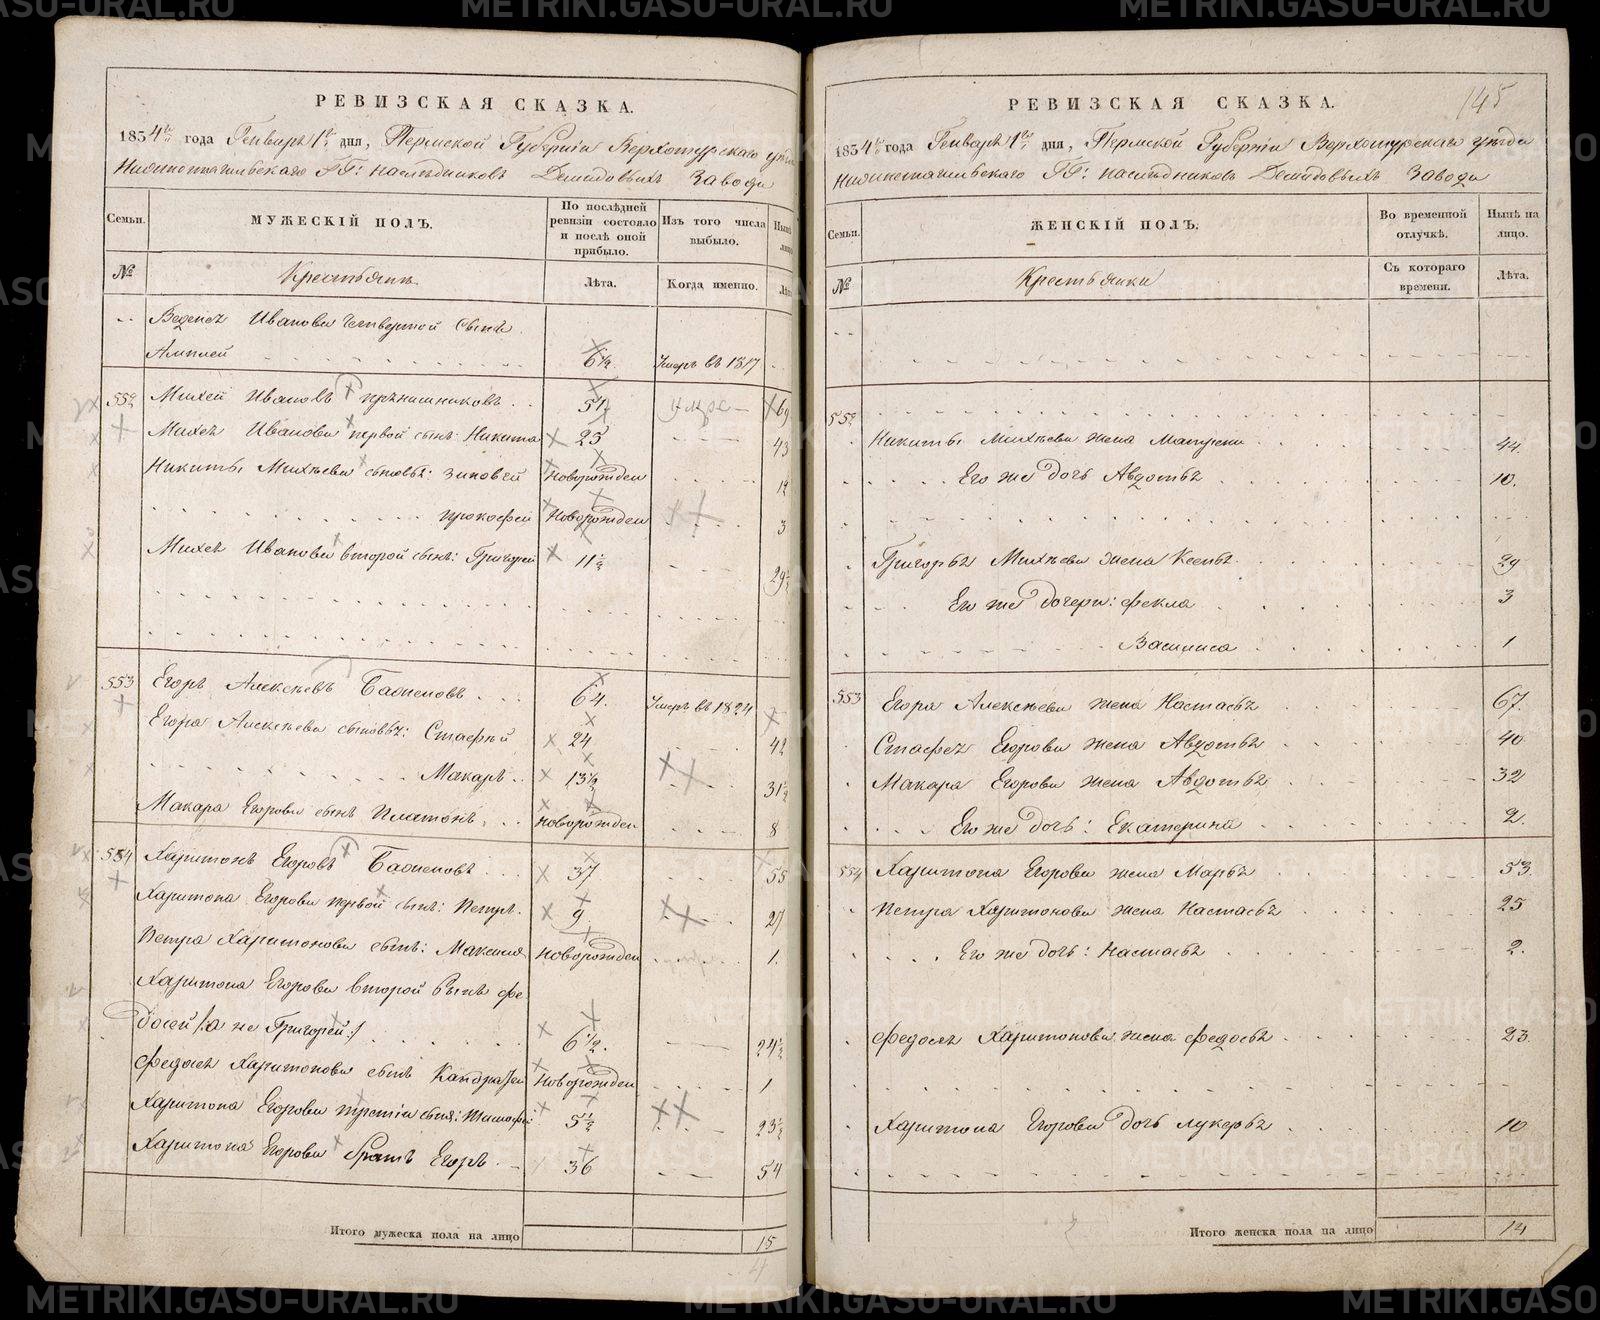 РЕВИЗСКАЯ СКАЗКА.
1834го года Генваря 1го дня, Пермской Губернiи Верхотурскаго уѣзда
Нижнетагильскаго ГГ: наслѣдниковъ Демидовыхъ Завода
Семьи.
МУЖЕСКIЙ ПОЛЪ.
По послѣдней ревизiи состояло и послѣ оной прибыло.
Изъ того числа выбыло.
Нынѣ
№
Крестьяне
Лѣта.
Когда именно.
Ивановы четвертой сынъ
6½. Умеръ въ 1817
552 Михей Ивановъ 51 69
Михея Иванова первой сынъ: Никита 25 43
Никиты Михѣева сыновья: Зиновей Новорожден 12
Прокофей Новорожден 3
Михея Иванова второй сынъ: Григорей 11½ 29½
553 Егоръ Алексѣевъ 64. Умеръ въ 1824
Егора Алексѣева сыновья: Стафѣй 24 42
Макаръ 13½ 31½
Макара Егорова сынъ Платонъ Новорожден 8
554 Харитонъ Егоровъ 37 55
Харитона Егорова первой сынъ: Петръ 9 27
Петра Харитонова сынъ: Максимъ Новорожден 1.
Харитона Егорова второй сынъ Фе
досей /:а не Григорей:/ 6½. 24½
Федосея Харитонова сынъ Новорожден 1
Харитона Егорова третiй сынъ: Тимофей 5½ 23½
Харитона Егорова братъ Егоръ 36 54
Итого мужеска пола на лицо 15
145
РЕВИЗСКАЯ СКАЗКА.
1834го года Генваря 1го дня, Пермской Губернiи Верхотурскаго уѣзда
Нижнетагильскаго ГГ: наслѣдниковъ Демидовыхъ Завода
Семьи.
ЖЕНСКIЙ ПОЛЪ.
Во временной отлучкѣ.
Нынѣ на лицо.
№
Крестьянки
Съ котораго времени.
Лѣта.
552
Никиты Михѣева жена Матрена 44.
Его же дочь Авдотья 10.
Григорья Михѣева жена Ксенья 29
Его же дочери: Фекла 3
Василиса 1
553 Егора Алексѣева жена Настасья 67.
Стафея Егорова жена Авдотья 40
Макара Егорова жена Авдотья 32
Его же дочь: Екатерина 2.
554 Харитона Егорова жена Марья 53.
Петра Харитонова жена Настасья 25
Его же дочь: Настасья 2.
Федосея Харитонова жена Федосья 23.
Харитона Егорова дочь Лукерья 10
Итого женска пола на лицо 14
METRIKI.GASO-URAL.RU